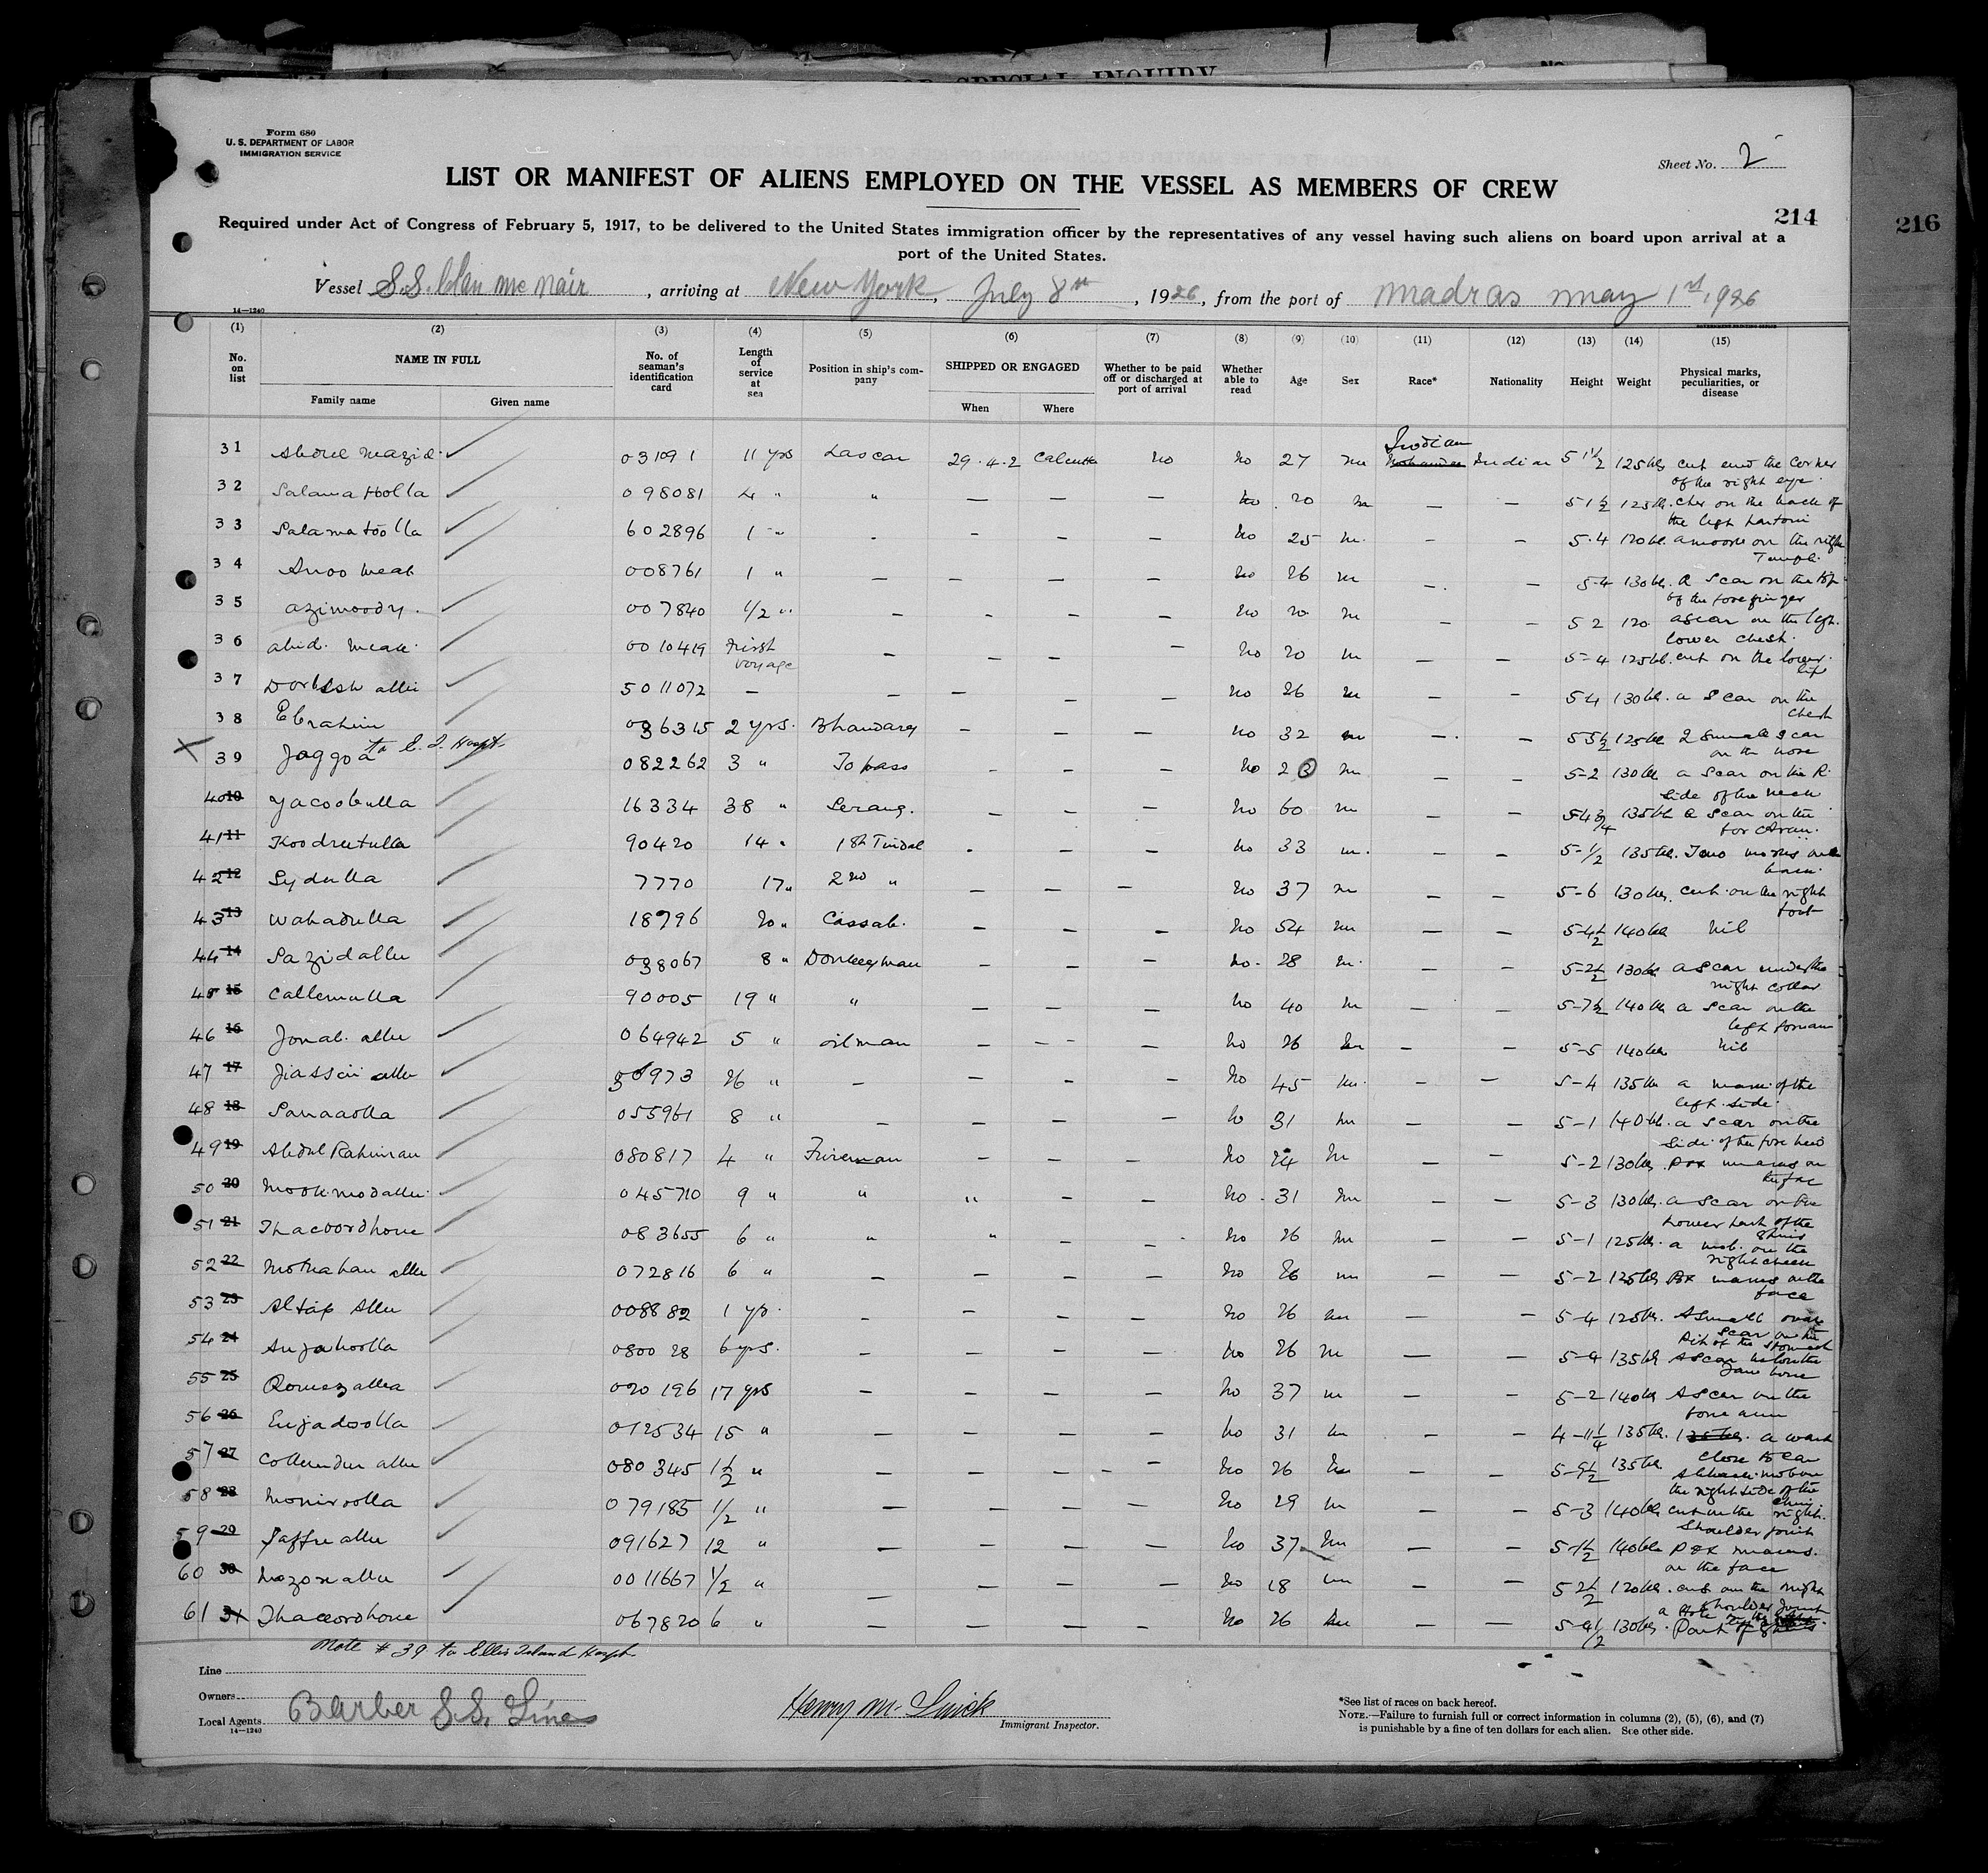 FOR SPECIAL INQUIRY
No.
Form 680
U. S. DEPARTMENT OF LABOR
IMMIGRATION SERVICE
Sheet No. 2
LIST OR MANIFEST OF ALIENS EMPLOYED ON THE VESSEL AS MEMBERS OF CREW
214
216
Required under Act of Congress of February 5, 1917, to be delivered to the United States immigration officer by the representatives of any vessel having such aliens on board upon arrival at a
port of the United States.
Vessel S.S. Clan Mc Nair, arriving at New York, July 8th, 1926, from the port of Madras May 1st, 1926
14—1240
GOVERNMENT PRINTING OFFICE
(1) (2) (3) (4) (5) (6) (7) (8) (9) (10) (11) (12) (13) (14) (15)
No. on list NAME IN FULL Family name Given name No. of seaman's identification card Length of service at sea Position in ship's company SHIPPED OR ENGAGED When Where Whether to be paid off or discharged at port of arrival Whether able to read Age Sex Race* Nationality Height Weight Physical marks, peculiarities, or disease
Indian
31 Abdul Mazid 031091 11 yrs Lascar 29.4.2 Calcutta No No 27 m Indian 5 1½ 125 lbs cut end the corner
of the right eye
32 Salama Holla 098081 4 " " — — — No 20 m — — 5 1½ 125 lb. on the back of
the left
33 Salamatoolla 602896 1 " - - — — No 25 m. - — 5.4 120 lb. on the right
Templ.
34 Anoo Meah 008761 1 " — — — — No 26 m — — 5-4 130 lbs. A scar on the top
of the forefinger
35 Azimoody. 007840 1/2 " — — — — No 20 m — — 5 2 120 a scar on the left
lower chest.
36 Abid. Meah. 0010419 First — — — — No 20 m — — 5-4 125 lb. cut on the lower
voyage lip
37 Dorbesh allie 5011072 — — — — — No 26 m — — 5-4 130 lb. a scar on the
chest
38 Ebrahim 036315 2 yrs. Bhandary — — — No 32 m — — 5-5½ 125 lb 2 small scar
on the nose
X to E. I. Hospt
39 Joggoa 082262 3 " Topass — — — No 23 m — — 5-2 130 lb a scar on the R.
side of the neck
40 10 Yacoobulla 16334 38 " Serang. — — — No 60 m — — 5-4¾ 135 lb a scar on the
41 11 Koodrutulla 90420 14 " 1st Tindal - — — No 33 m. — — 5-1/2 135 lb. Two on
back.
42 12 Sydulla 7770 17 " 2nd " — — — No 37 m — — 5-6 130 lbs. cut on the right
foot
43 13 Wahadulla 18796 20 " Cassab. — — — No 54 m — — 5-4½ 140 lb Nil
44 14 Sazidallu 038067 8 " Donkeyman — — — No. 28 m. — — 5-2½ 130 lb a scar under the
right collar
45 15 Callemulla 90005 19 " " — — — No 40 m — — 5-7½ 140 lb a scar on the
left forearm
46 16 Jonab. allu 064942 5 " oilman — — — No 26 m — — 5-5 140 lbs Nil
47 17 Jiassin allu 50973 26 " — — — — No 45 m. — — 5-4 135 lb a mark of the
left side.
48 18 Sanaaolla 055961 8 " — — — — No 31 m — — 5-1 140 lb. a scar on the
side of the fore head
49 19 Abdul Rahiman 080817 4 " Fireman — — — No 24 m — — 5-2 130 lbs. pox marks on
the face
50 20 Mookmodallu 045710 9 " " " — — No 31 m — — 5-3 130 lbs. a scar on the
lower part of the
shins
51 21 Thacoordhone 083655 6 " " " — — No 26 m — — 5-1 125 lb. a on the
right cheek
52 22 allu 072816 6 " — — — — No 26 m — — 5-2 125 lb Pox marks on the
face
53 23 Altap Allu 008882 1 yr. — — — — No 26 m — — 5-4 125 lb. A small
scar on the
Pit of the stomach
54 24 Anjaboolla 080028 6 yrs. — — — — No 26 m — — 5-4 135 lb A scar below the
Jaw bone
55 25 Romezallea 020196 17 yrs — — — — No 37 m — — 5-2 140 lb A scar on the
fore arm
56 26 Enjadoolla 012534 15 " — — — — No 31 m — — 4-11¼ 135 lb. 135 lbs. a wart
close to ear
57 27 allu 080345 1½ " — — — — No 26 m — — 5-5½ 135 lb.
the right side of the
chin
58 28 Moniroolla 079185 1/2 " — — — — No 29 m — — 5-3 140 lb cut on the right.
shoulder joint
59 29 Jaffer allu 091627 12 " — — — — No 37 m — — 5-1½ 140 lb Pox marks.
on the face
60 30 allu 0011667 1/2 " — — — — No 18 m — — 5 2½ 120 lb. cut on the right
shoulder joint
61 31 Thacoordhone 067820 6 " — — — — No 26 m — — 5-4½ 130 lbs. a Hole
Part of
Note # 39 to Ellis Island Hospt
Line
Owners
Local Agents Barber S.S. Lines
14—1240
Henry Mc
Immigrant Inspector.
*See list of races on back hereof.
NOTE.—Failure to furnish full or correct information in columns (2), (5), (6), and (7)
is punishable by a fine of ten dollars for each alien. See other side.